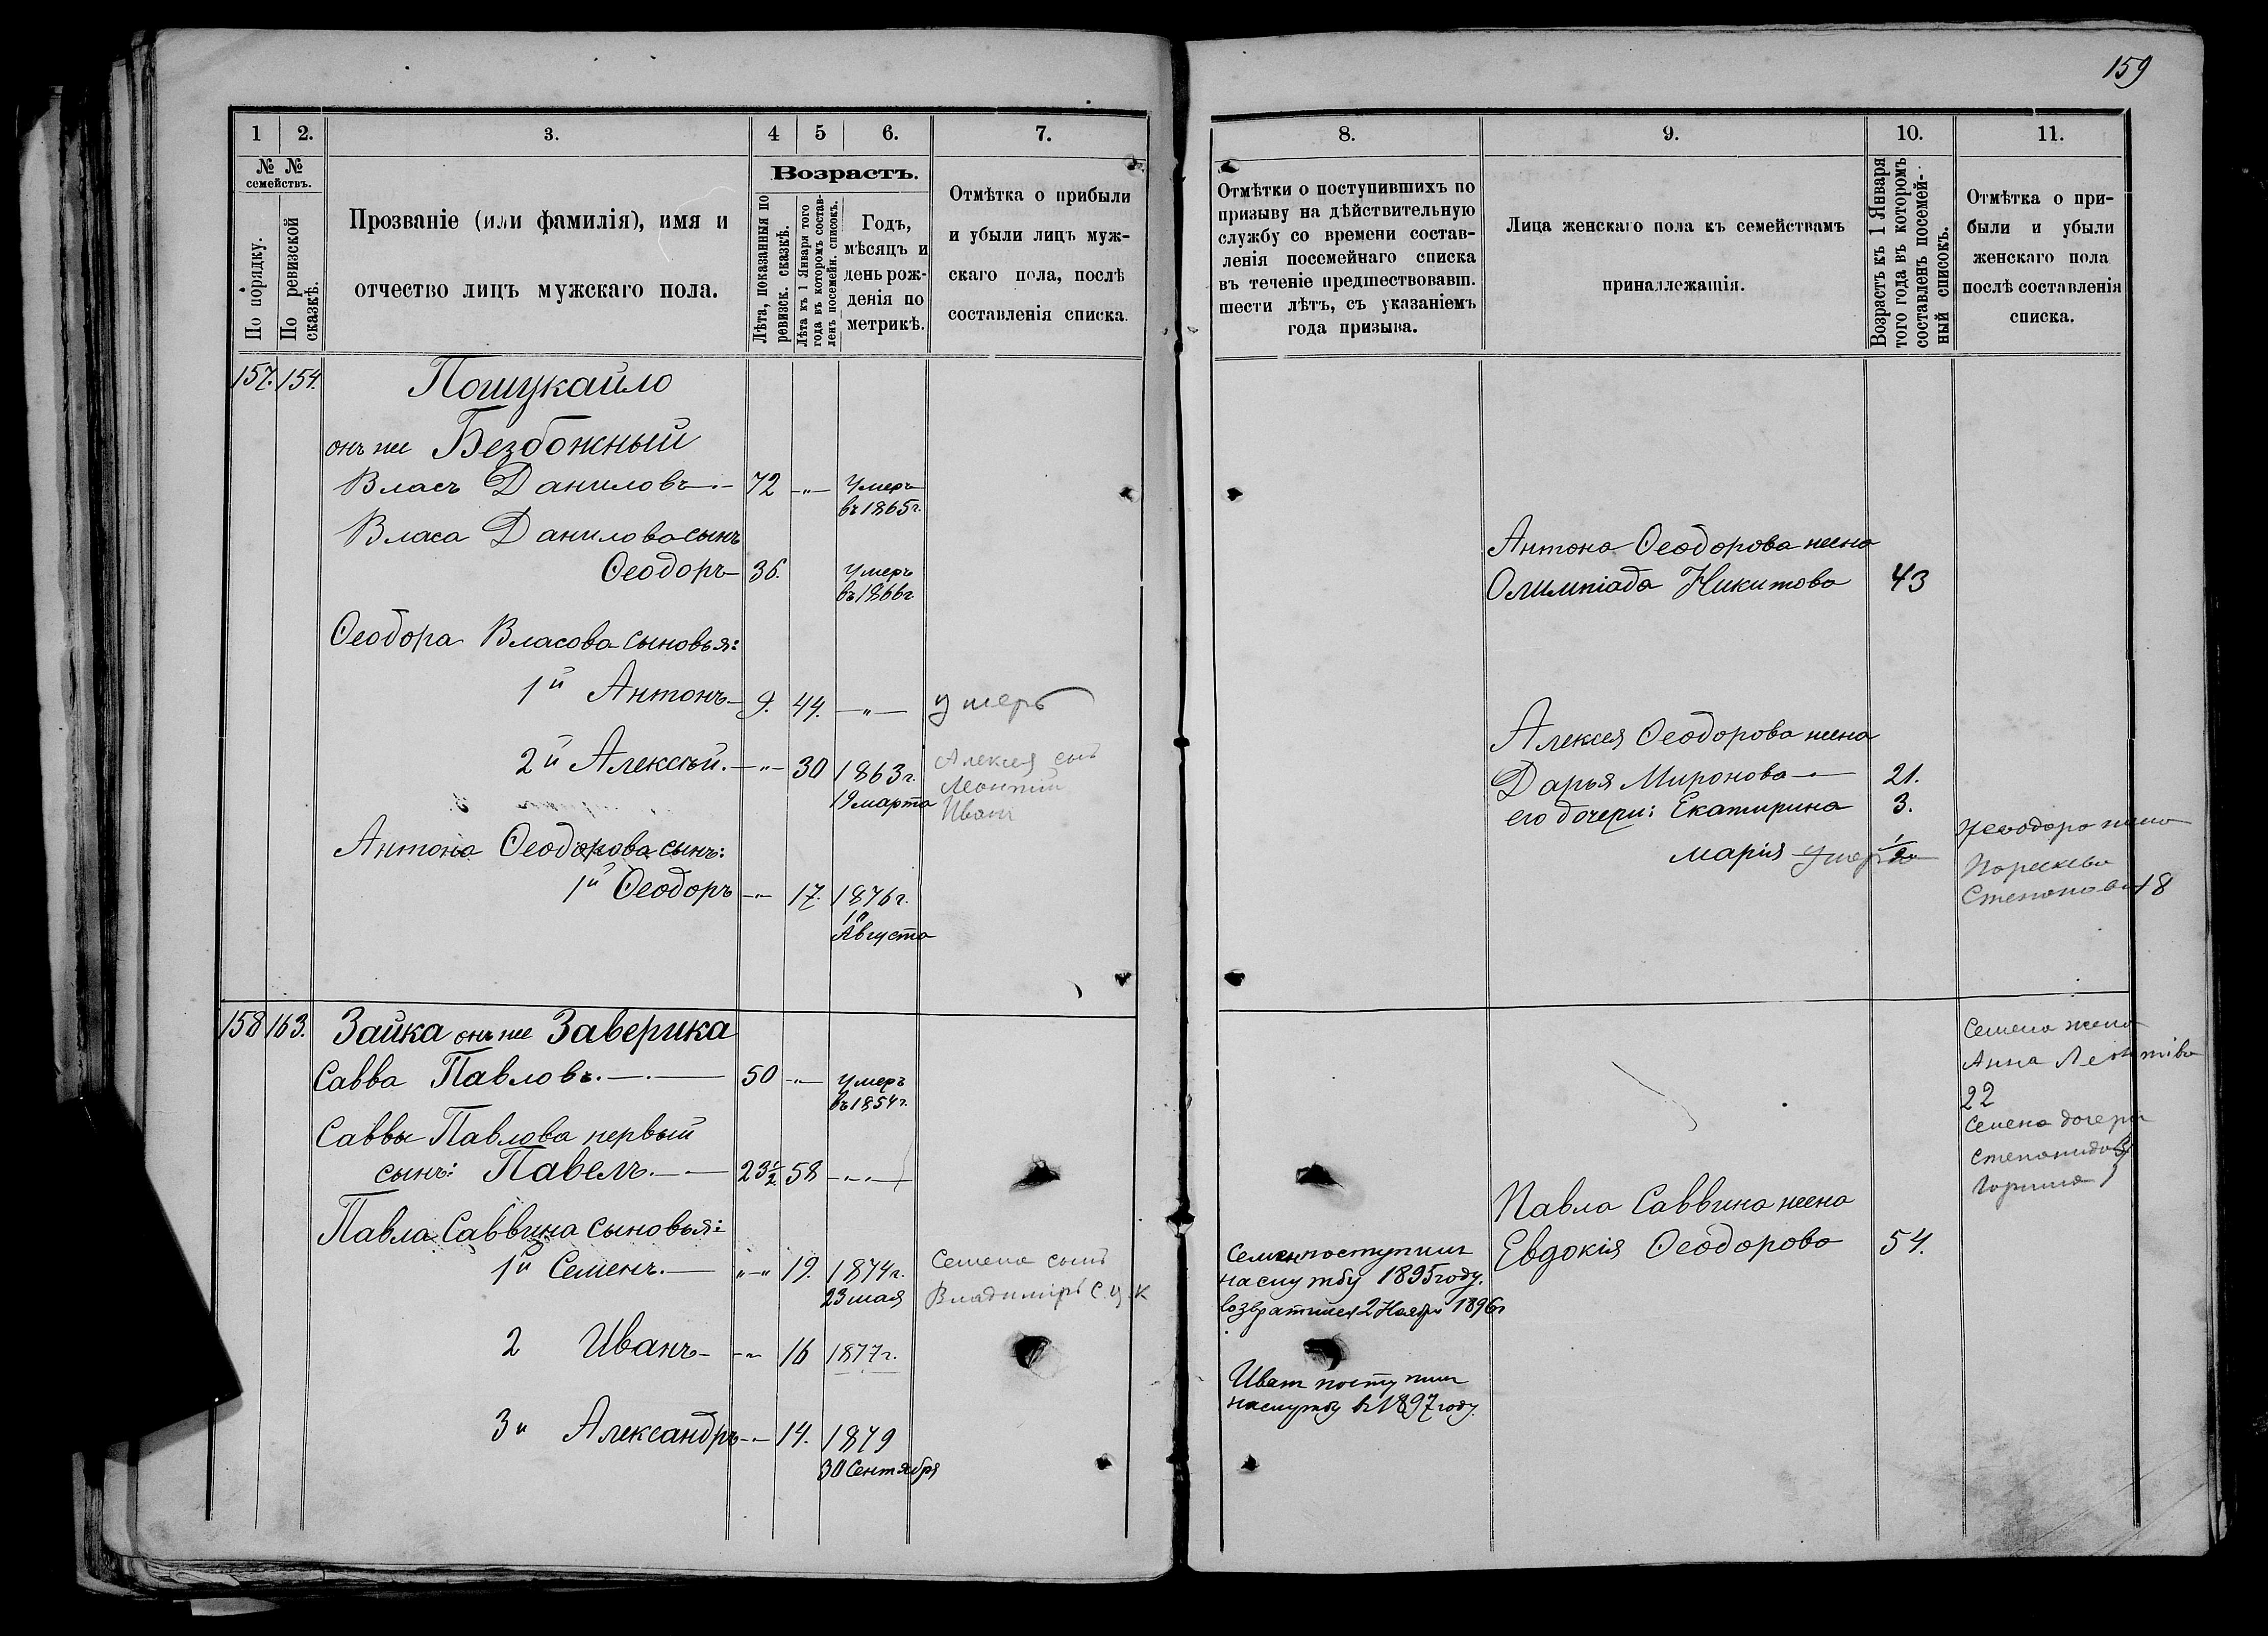 159
1 2. 3. 4 5 6. 7.
№ № семействъ.
По порядку.
По ревизской сказкѣ.
Прозваніе (или фамилія), имя и
отчество лицъ мужскаго пола.
Возрастъ.
Лѣта, показанныя по
ревизск. сказкѣ.
Лѣта къ 1 Января того
года въ которомъ состав-
ленъ посемейн. списокъ.
Годъ,
мѣсяцъ и
день рож-
денія по
метрикѣ.
Отмѣтка о прибыли
и убыли лицъ муж-
скаго пола, послѣ
составленія списка.
157. 154. Пошукайло
онъ же Безбожный
Власъ Даниловъ 72 —„— Умеръ
въ 1865г.
Власа Данилова сынъ
Ѳеодоръ 36. Умеръ
въ 1866г.
Ѳеодора Власова сыновья:
1й Антонъ 9. 44. —„— умеръ
2й Алексѣй. —„— 30 1863г.
19 марта
Алексея сынъ
Леонтий
Иванъ
Антона Ѳеодорова сынъ:
1й Ѳеодоръ —„— 17. 1876г.
Августа
158 163. Зайка онъ же Заверика
Савва Павловъ. 50 —„— Умеръ
въ 1854г.
Саввы Павлова первый
сынъ: Павелъ. 23½ 58 —„—
Павла Саввина сыновья:
1й Семенъ. „—„ 19. 1874г.
23 мая
Семена сынъ
Владимиръ
2 Иванъ —„— 16 1877г.
3й Александръ —„— 14. 1879
30 Сентября
8. 9. 10. 11.
Отмѣтки о поступившихъ по
призыву на дѣйствительную
службу со времени состав-
ленія посемейнаго списка
въ теченіе предшествовавш.
шести лѣтъ, съ указаніемъ
года призыва.
Лица женскаго пола къ семействамъ
принадлежащія.
Возрастъ къ 1 Января
того года въ которомъ
составленъ посемей-
ный списокъ.
Отмѣтка о при-
были и убыли
женскаго пола
послѣ составленія
списка.
Антона Ѳеодорова жена
Олимпіада Никитова 43
Алексея Ѳеодорова жена
Дарья Миронова 21.
его дочери: Екатирина 3.
Марія умерла ½
жена
Параскева
Степанова 18
Семена жена
Анна
22
Семена дочери
Степанида
Павла Саввина жена
Евдокія Ѳеодорова 54.
Семенъ поступилъ
на службу 1895 году.
возвратился 2 Ноября 1896г
Иванъ поступилъ
на службу в 1897 году.